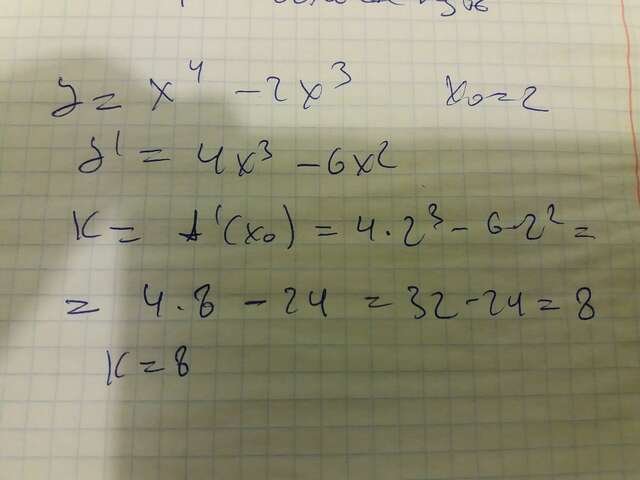 y = x⁴ - 2x³ x₀ = 2
y' = 4x³ - 6x²
K = f'(x₀) = 4·2³ - 6·2² =
= 4·8 - 24 = 32 - 24 = 8
K = 8